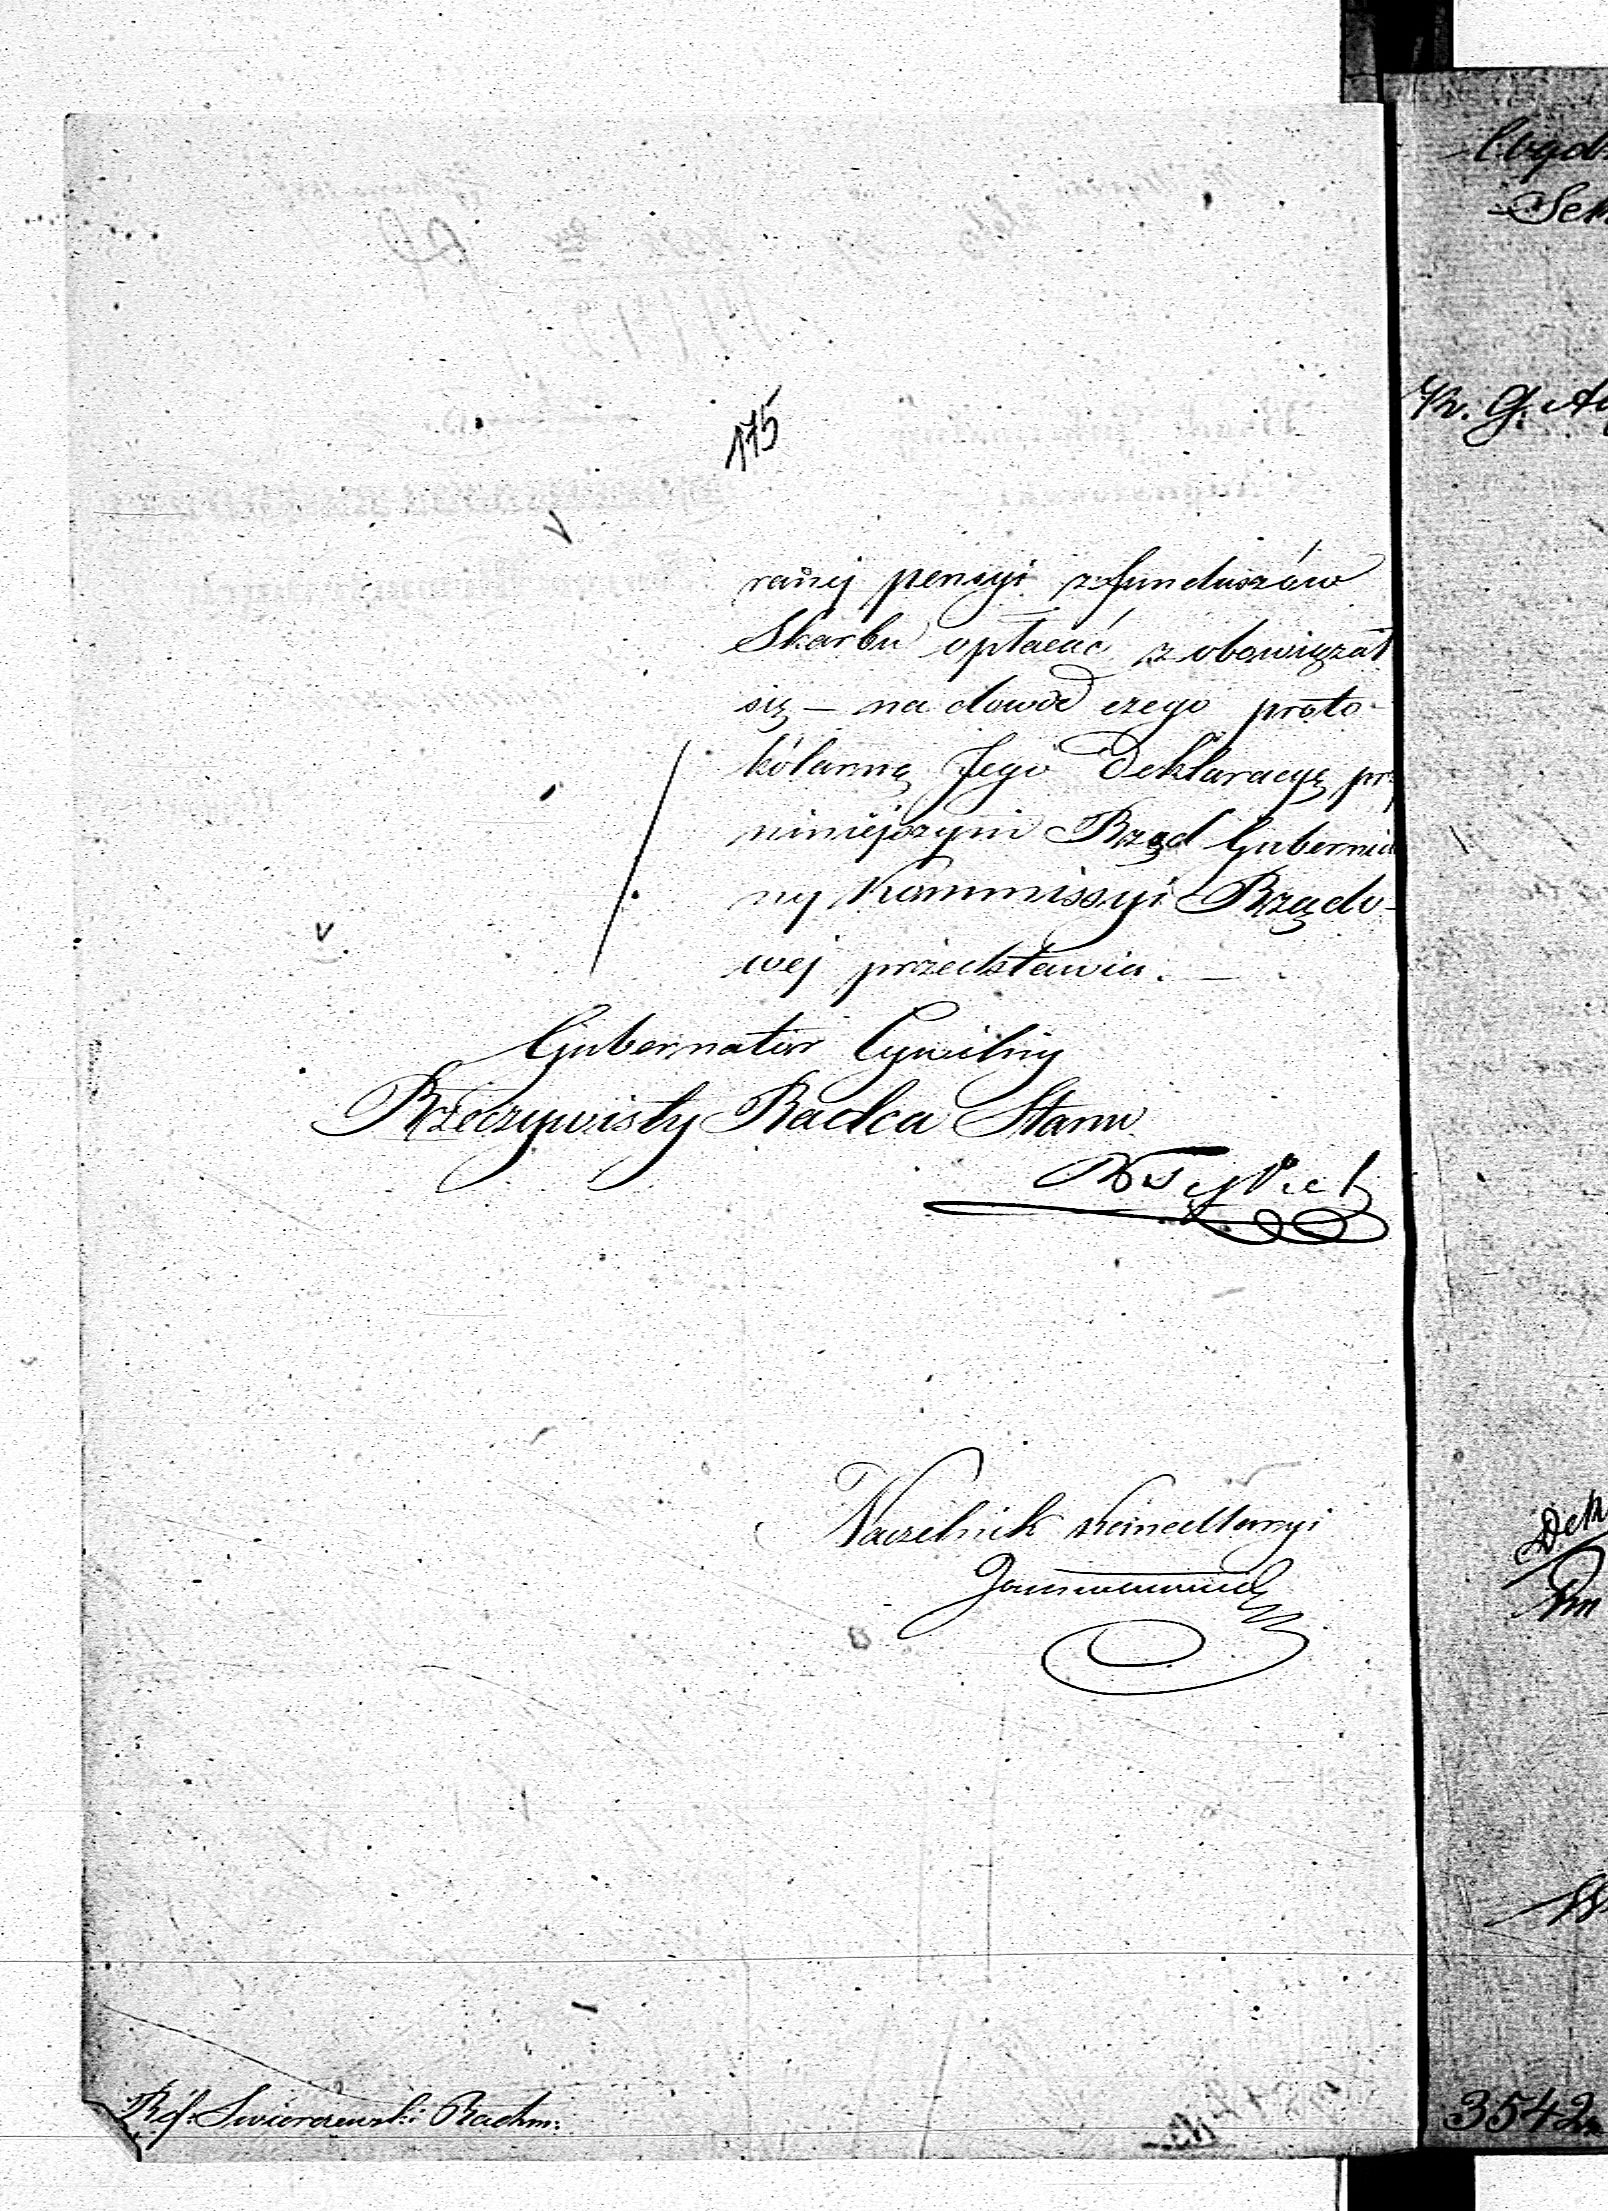 175
ranej pensyi z funduszów
Skarbu opłacać zobowiązał
się — na dowód czego proto-
kólarną Jego Deklaracyę prz
niniejszym Rząd Gubernial
ny Kommissyi Rządo-
wej przedstawia. —
Gubernator Cywilny
Rzeczywisty Radca Stanu
Naczelnik Kancellaryi
Ref. Swierczewski Rachm:
K. G. Au
3542